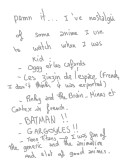 Damn it... I've nostalgia
of some anime I can
to watch when I was
kid
- Oggy et les cafards
- Les Zinzin de l'espace (French,
I don't think it was exported)
- Pinky and the Brain, Minus et
Cortex in french.
- BATMAN !!
- GARGOYLES !!
- I was fan of
the generic and the animation
and alot of good animes.